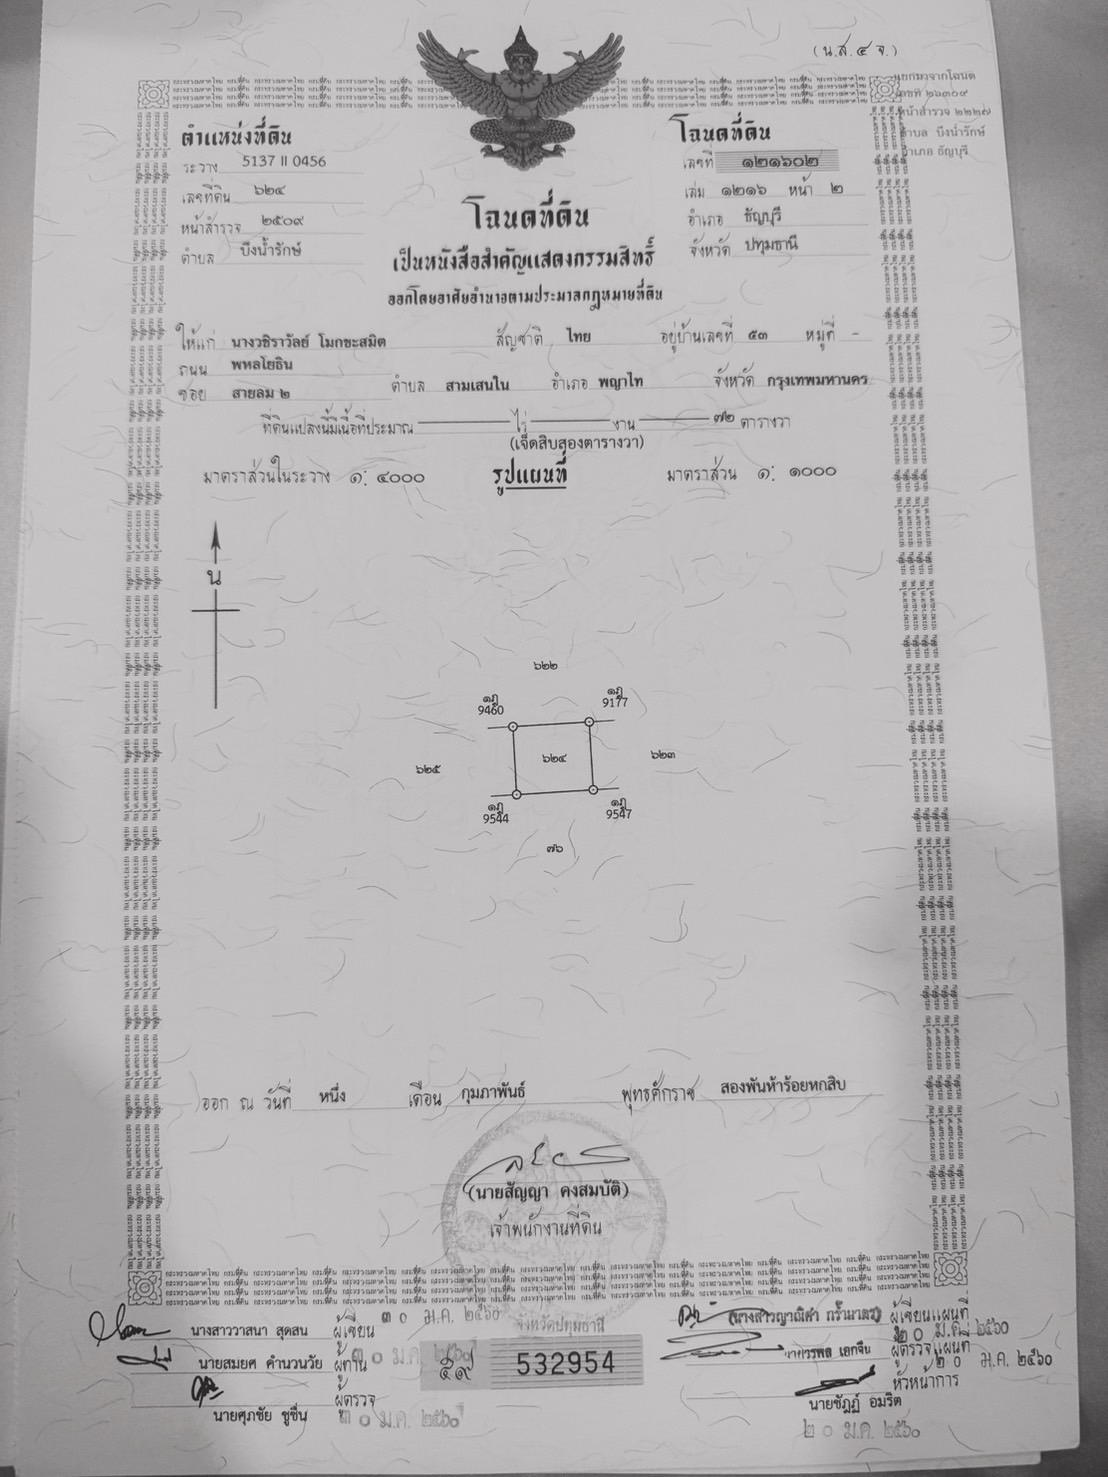 (น.ส.๔ จ.)
แยกมาจากโฉนด
เลขที่ ๒๖๓๐๙
หน้าสำรวจ ๒๒๒๗
ตำบล บึงน้ำรักษ์
อำเภอ ธัญบุรี
ตำแหน่งที่ดิน
ระวาง 5137 II 0456
เลขที่ดิน ๖๒๔
หน้าสำรวจ ๒๕๐๙
ตำบล บึงน้ำรักษ์
โฉนดที่ดิน
เลขที่ ๑๒๑๖๐๒
เล่ม ๑๒๑๖ หน้า ๒
อำเภอ ธัญบุรี
จังหวัด ปทุมธานี
โฉนดที่ดิน
เป็นหนังสือสำคัญแสดงกรรมสิทธิ์
ออกโดยอาศัยอำนาจตามประมวลกฎหมายที่ดิน
ให้แก่ นางวชิราวัลย์ โมกขะสมิต สัญชาติ ไทย อยู่บ้านเลขที่ ๕๓ หมู่ที่ -
ถนน พหลโยธิน
ซอย สายลม ๒ ตำบล สามเสนใน อำเภอ พญาไท จังหวัด กรุงเทพมหานคร
ที่ดินแปลงนี้มีเนื้อที่ประมาณ ไร่ งาน ๗๒ ตารางวา
(เจ็ดสิบสองตารางวา)
มาตราส่วนในระวาง ๑: ๔๐๐๐ รูปแผนที่ มาตราส่วน ๑: ๑๐๐๐
น
๖๒๒
๑ฦ 9460
๑ฦ 9177
๖๒๕ ๖๒๔ ๖๒๓
๑ฦ 9544
๑ฦ 9547
๗๖
ออก ณ วันที่ หนึ่ง เดือน กุมภาพันธ์ พุทธศักราช สองพันห้าร้อยหกสิบ
(นายสัญญา คงสมบัติ)
เจ้าพนักงานที่ดิน
จังหวัดปทุมธานี
นางสาววาสนา สุดสน ผู้เขียน ๓๐ ม.ค. ๒๕๖๐
นายสมยศ คำนวนวัย ผู้ทาน ๓๐ ม.ค. ๒๕๖๐
ผู้ตรวจ
นายศุภชัย ชูชื่น ๓๐ ม.ค. ๒๕๖๐
๕๙ 532954
ผู้เขียนแผนที่
๒๐ ม.ค. ๒๕๖๐
นายวรพล เอกจีน ผู้ตรวจแผนที่
๒๐ ม.ค. ๒๕๖๐
หัวหน้าการ
นายชัฎฏ์ อมริต
๒๐ ม.ค. ๒๕๖๐